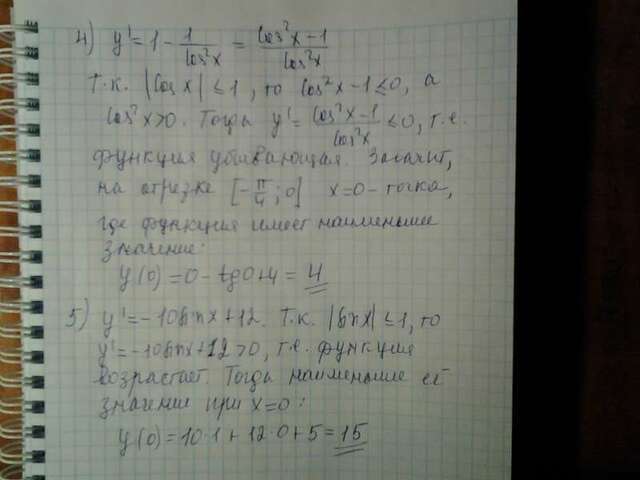 4) y' = 1 - 1/cos²x = (cos²x - 1)/cos²x
Т.к. |cos x| ≤ 1, то cos²x - 1 ≤ 0, а
cos²x > 0. Тогда y' = (cos²x - 1)/cos²x ≤ 0, т.е.
функция убывающая. Значит,
на отрезке [-π/4; 0] x=0 - точка,
где функция имеет наименьшее
значение:
y(0) = 0 - tg0 + 4 = 4
5) y' = -10sinx + 12. Т.к. |sinx| ≤ 1, то
y' = -10sinx + 12 > 0, т.е. функция
возрастает. Тогда наименьшее её
значение при x=0:
y(0) = 10·1 + 12·0 + 5 = 15